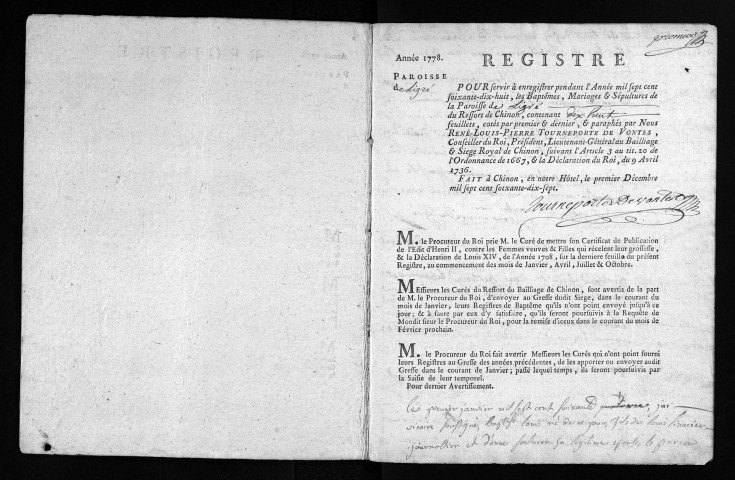 premier
Année 1778.
REGISTRE
PAROISSE
de Ligré
POUR servir à enregistrer pendant l'Année mil sept cent
soixante-dix-huit, les Baptêmes, Mariages & Sépultures de
la Paroisse de Ligré
du Ressort de Chinon, contenant dix huit
feuillets, cotés par premier & dernier, & paraphés par Nous
RENÉ-LOUIS-PIERRE TOURNEPORTE DE VONTES,
Conseiller du Roi, Président, Lieutenant-Général au Bailliage
& Siege Royal de Chinon, suivant l'Article 3 au tit. 20 de
l'Ordonnance de 1667, & la Déclaration du Roi, du 9 Avril
1736.
FAIT à Chinon, en notre Hôtel, le premier Décembre
mil sept cent soixante-dix-sept.
Tourneporte De Vontes
M. le Procureur du Roi prie M. le Curé de mettre son Certificat de Publication
de l'Edit d'Henri II, contre les Femmes veuves & Filles qui récelent leur grossesse,
& la Déclaration de Louis XIV, de l'Année 1708, sur la derniere feuille du présent
Registre, au commencement des mois de Janvier, Avril, Juillet & Octobre.
MEssieurs les Curés du Ressort du Bailliage de Chinon, sont avertis de la part
de M. le Procureur du Roi, d'envoyer au Greffe dudit Siege, dans le courant du
mois de Janvier, leurs Registres de Baptême qu'ils n'ont point envoyé jusqu'à ce
jour; & à faute par eux d'y satisfaire, qu'ils seront poursuivis à la Requête de
Mondit sieur le Procureur du Roi, pour la remise d'iceux dans le courant du mois de
Février prochain.
M. le Procureur du Roi fait avertir Messieurs les Curés qui n'ont point fourni
leurs Registres au Greffe des années précédentes, de les apporter ou envoyer audit
Greffe dans le courant de Janvier; passé lequel temps, ils seront poursuivis par
la Saisie de leur temporel.
Pour dernier Avertissement.
le premier janvier mil sept cent soixante
vicaire soussigné, baptisé louis né de ce jour, fils de louis
journallier et d'anne sa légitime epouse, le parein